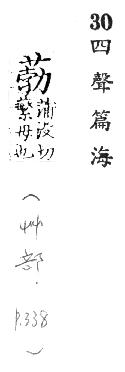 30 四聲篇海
葧
蒲没切
蘩母也
(艸部.P.338)